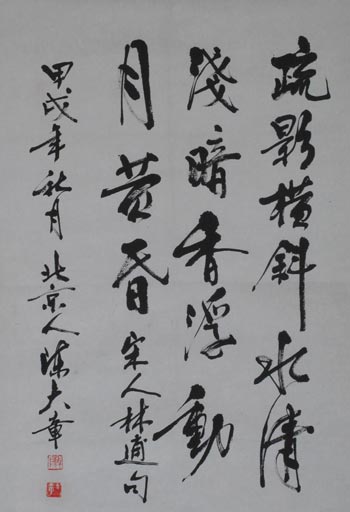 疏影橫斜水清
淺暗香浮動
月黃昏 宋人林逋句
甲戌年秋月 北京人陈大章